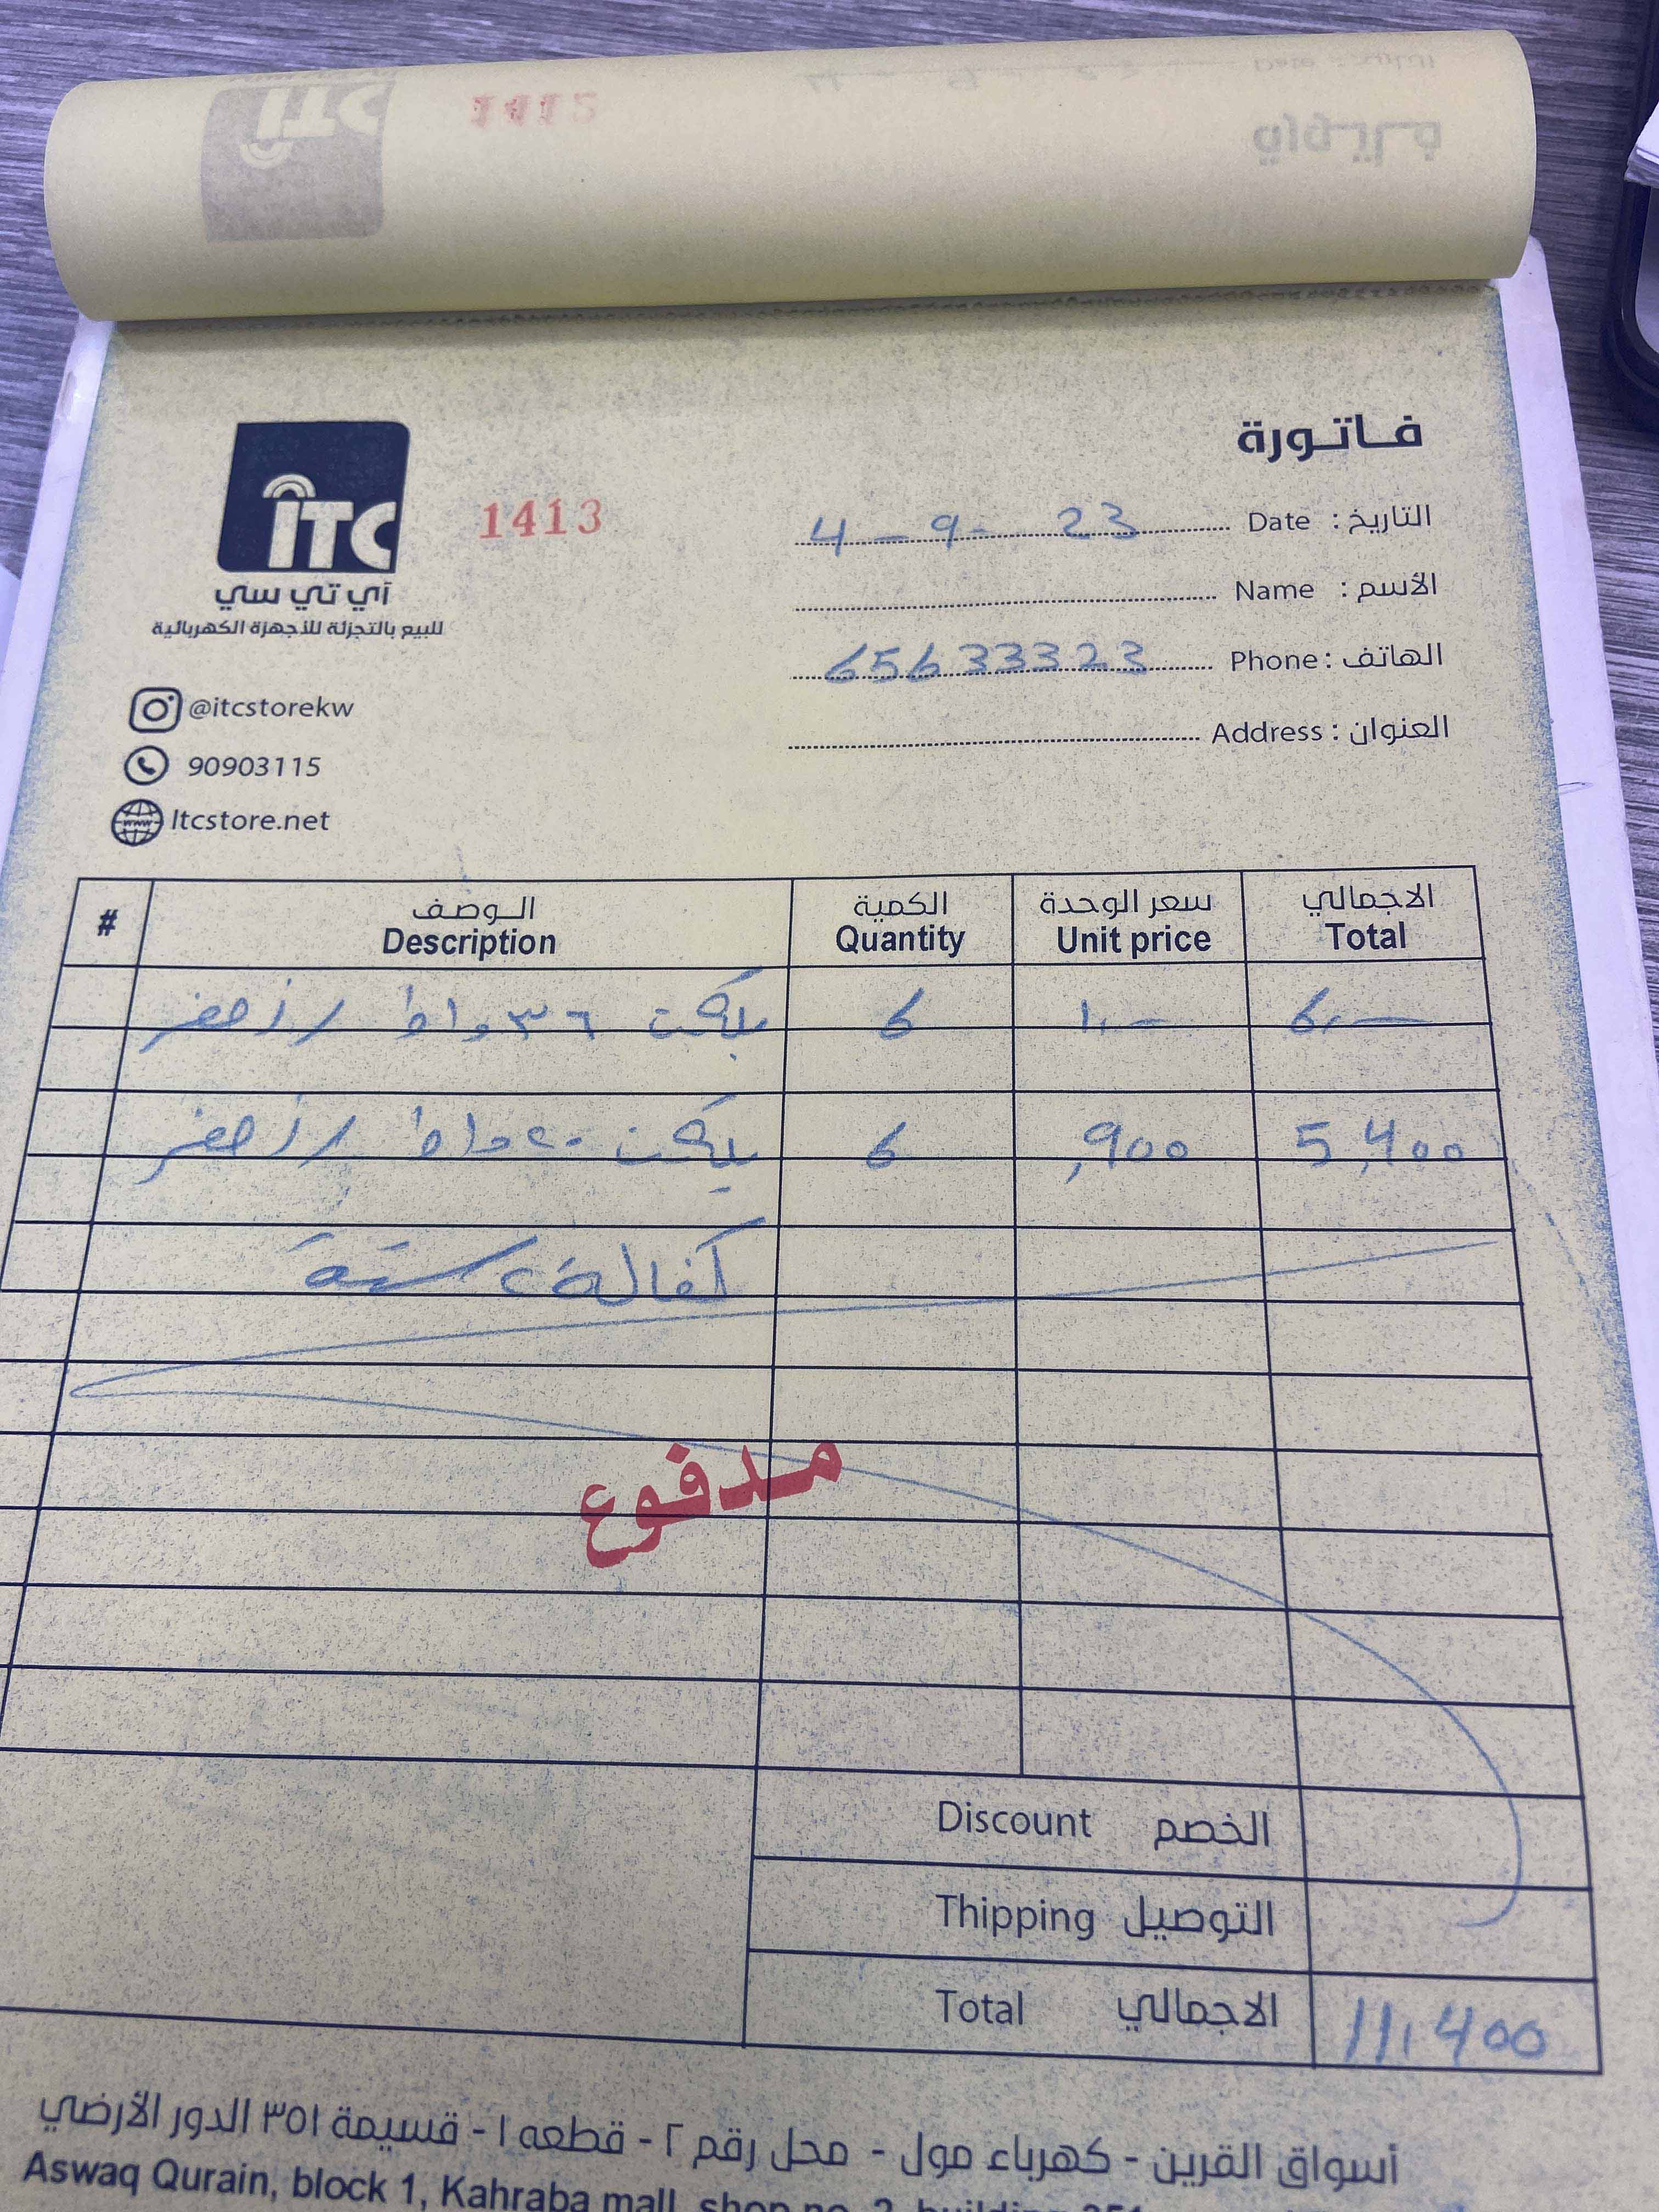 فاتورة
iTC
آي تي سي
للبيع بالتجزئة للأجهزة الكهربائية
1413
التاريخ : Date 4 - 9 - 23
الأسم : Name
الهاتف : Phone 65633323
العنوان : Address
@itcstorekw
90903115
Itcstore.net
# الوصف الكمية سعر الوحدة الاجمالي
Description Quantity Unit price Total
بلكت ٣٦ واط 6 1,— 6,—
بلكت ٢٠ واط 6 ,900 5,400
كفالة ٢ سنة
مدفوع
Discount الخصم
Thipping التوصيل
Total الاجمالي 11,400
أسواق القرين - كهرباء مول - محل رقم ٢ - قطعه ١ - قسيمة ٣٥١ الدور الأرضي
Aswaq Qurain, block 1, Kahraba mall, shop no. 2, building 351